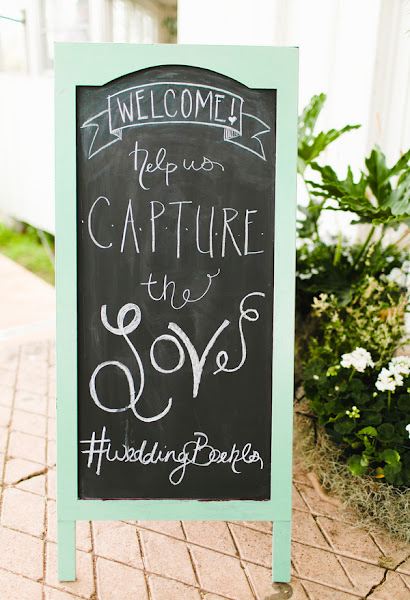 WELCOME!
help us
C.A.P.T.U.R.E
the
Love